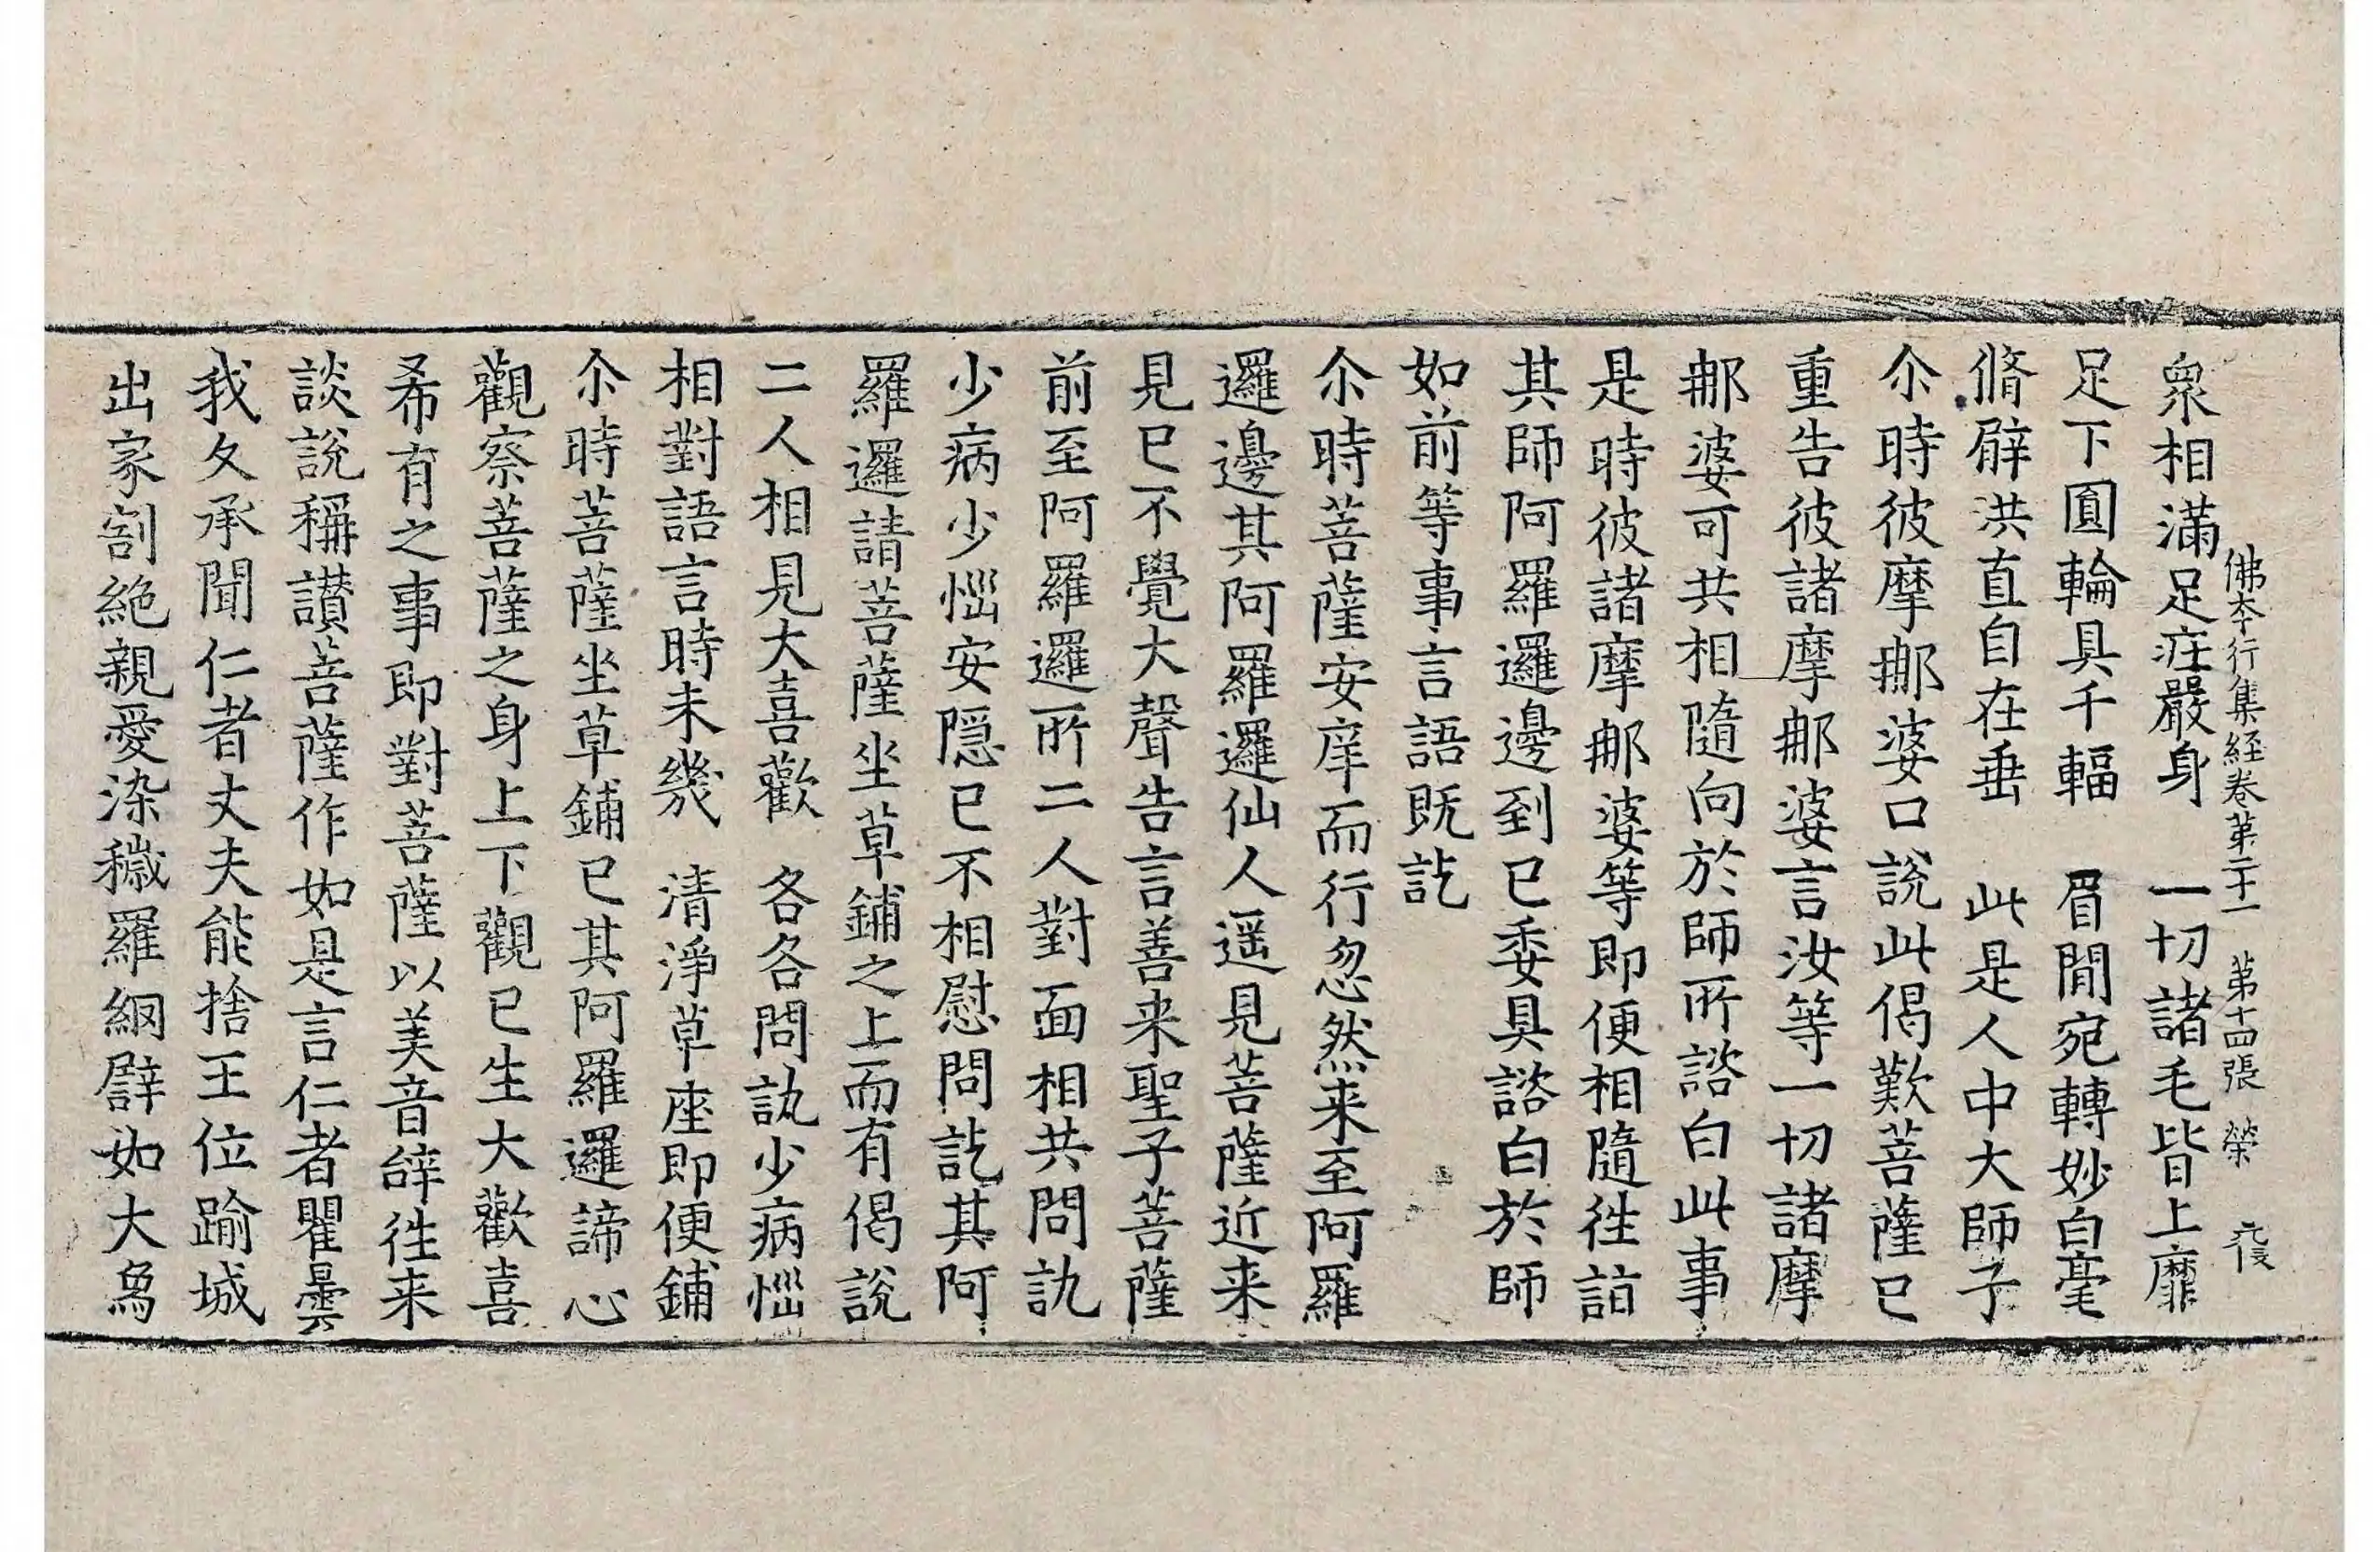 佛本行集経卷第二十一 第十四張 榮
衆相滿足庄嚴身 一切諸毛皆上靡
足下圓輪具千輻 眉間宛轉妙白毫
脩臂洪直自在垂 此是人中大師子
尒時彼摩那婆口說此偈歎菩薩已
重告彼諸摩那婆言汝等一切諸摩
那婆可共相隨向於師所諮白此事
是時彼諸摩那婆等即便相隨往詣
其師阿羅邏邊到已委具諮白於師
如前等事言語既訖
尒時菩薩安庠而行忽然来至阿羅
邏邊其阿羅邏仙人遥見菩薩近来
見已不覺大聲告言善来聖子菩薩
前至阿羅邏所二人對面相共問訊
少病少惱安隱已不相慰問訖其阿
羅邏請菩薩坐草鋪之上而有偈說
二人相見大喜歡 各各問訊少病惱
相對語言時未幾 清淨草座即便鋪
尒時菩薩坐草鋪已其阿羅邏諦心
觀察菩薩之身上下觀已生大歡喜
希有之事即對菩薩以美音辝往来
談說稱讃菩薩作如是言仁者瞿曇
我久承聞仁者丈夫能捨王位踰城
出家割絶親愛染穢羅網譬如大烏